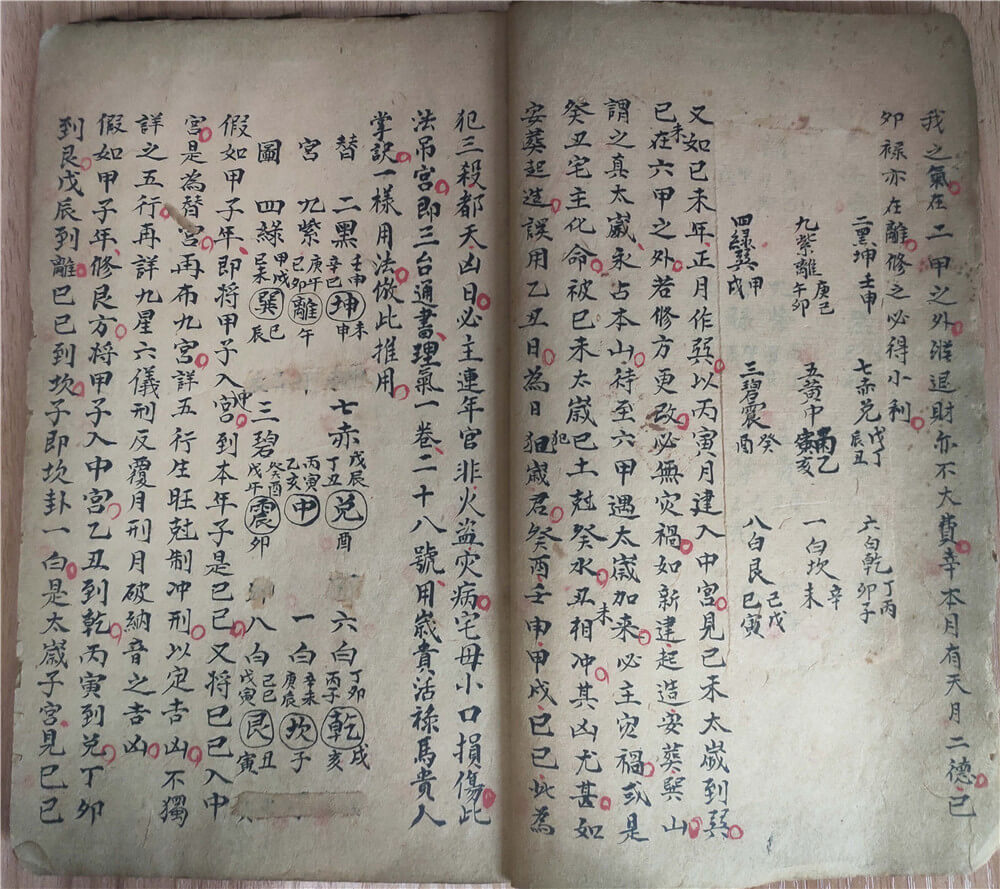 我之氣在二甲之外雖退財亦不大費幸本月有天月二德己
卯祿亦在離修之必得小利
二黑坤壬申 七赤兌戊丁辰丑 六白乾丁丙卯子
九紫離庚己午卯 五黃中丙乙寅亥 一白坎辛未
四綠巽甲戌 三碧震癸酉 八白艮己戊巳寅
又如己未年正月作巽以丙寅月建入中宮見己未太歲到巽
己未在六甲之外若修方更改必無灾禍如新建起造安葬巽山
謂之真太歲永占本山待至六甲遇太歲加來必主灾禍或是
癸丑宅主化命被己未太歲己土尅癸水丑未相冲其凶尤甚如
安葬起造誤用乙丑日為日犯歲君癸酉壬申甲戌己巳此為
犯三殺都天凶日必主連年官非火盜灾病宅母小口損傷此
法吊宮即三台通書理氣一卷二十八號用歲貴活祿馬貴人
掌訣一樣用法倣此推用
替 二黑壬申辛巳坤未申 七赤戊辰丁丑兌酉 六白丁卯丙子乾戌亥
宮 九紫庚午己卯離午 丙寅乙亥中 一白辛未庚辰坎子
圖 四綠甲戌己未巽巳辰 三碧癸酉戊午震卯 八白己巳戊寅艮丑寅
假如甲子年即將甲子入中宮到本年子是己巳又將己巳入中
宮是為替宮再布九宮詳五行生旺尅制冲刑以定吉凶不獨
詳之五行再詳九星六儀刑反覆月刑月破納音之吉凶
假如甲子年修艮方將甲子入中宮乙丑到乾丙寅到兌丁卯
到艮戊辰到離己巳到坎子即坎卦一白是太歲子宮見己巳